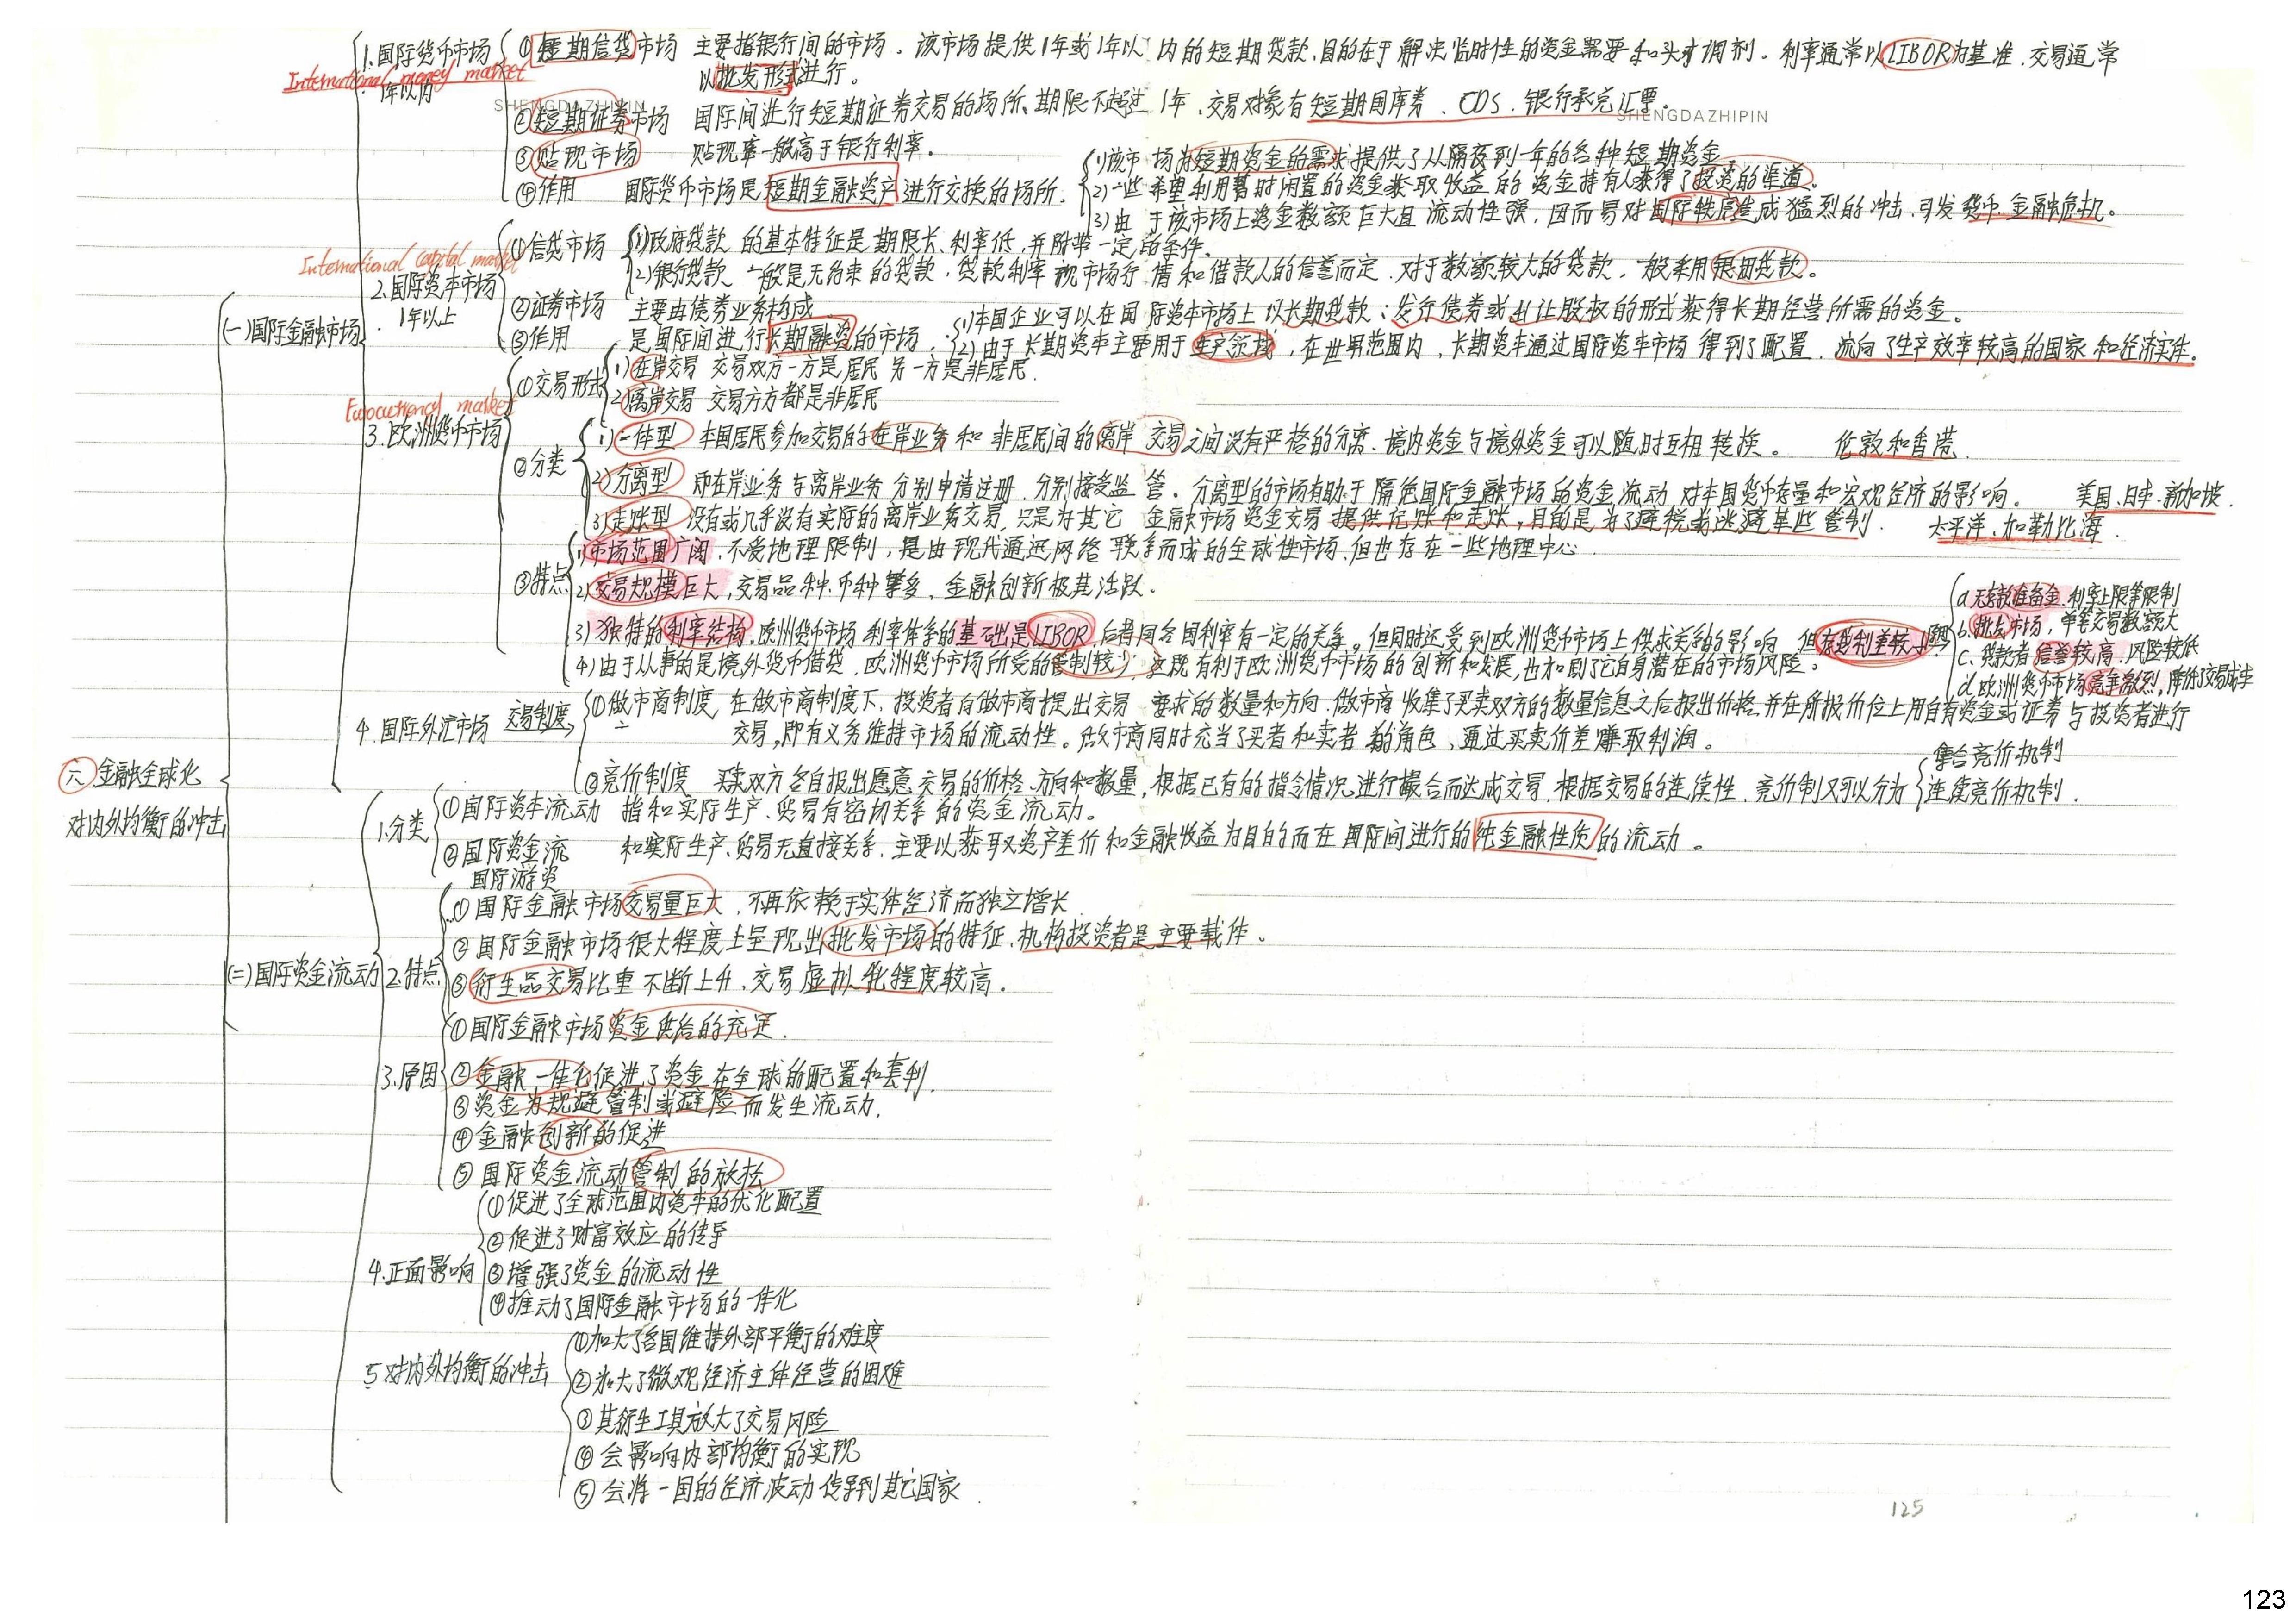 1.国际货币市场
International money market
1年以内
①短期信贷市场 主要指银行间的市场。该市场提供1年或1年以内的短期贷款,目的在于解决临时性的资金需要和头寸调剂。利率通常以LIBOR为基准,交易通常
以批发形式进行。
SHENGDAZHIPIN
②短期证券市场 国际间进行短期证券交易的场所、期限不超过1年、交易对象有短期国库券、CDs、银行承兑汇票。
SHENGDAZHIPIN
③贴现市场 贴现率一般高于银行利率。
④作用 国际货币市场是短期金融资产进行交换的场所.
1)该市场为短期资金的需求提供了从隔夜到一年的各种短期资金
2)一些希望利用暂时闲置的资金获取收益的资金持有人获得了投资的渠道。
3)由于该市场上资金数额巨大且流动性强,因而易对国际秩序造成猛烈的冲击,引发货币金融危机。
International capital market
2.国际资本市场
1年以上
①信贷市场
1)政府贷款 的基本特征是期限长、利率低,并附带一定的条件。
2)银行贷款 一般是无约束的贷款,贷款利率视市场行情和借款人的信誉而定,对于数额较大的贷款,一般采用银团贷款。
②证券市场 主要由债券业务构成
③作用 是国际间进行长期融资的市场.
1)本国企业可以在国际资本市场上以长期贷款;发行债券或出让股权的形式获得长期经营所需的资金。
2)由于长期资本主要用于生产领域,在世界范围内,长期资本通过国际资本市场得到了配置,流向了生产效率较高的国家和经济实体。
(一)国际金融市场
3.欧洲货币市场
①交易形式
1)在岸交易 交易双方一方是居民 另一方是非居民.
2)离岸交易 交易方方都是非居民
②分类
1)一体型 本国居民参加交易的在岸业务和非居民间的离岸交易之间没有严格的分离、境内资金与境外资金可以随时互相转换。 伦敦和香港.
2)分离型 即在岸业务与离岸业务分别申请注册,分别接受监管。分离型的市场有助于隔绝国际金融市场的资金流动对本国货币存量和宏观经济的影响。 美国、日本、新加坡.
3)走账型 没有或几乎没有实际的离岸业务交易,只是为其它金融市场资金交易提供记账和走账,目的是为了避税或逃避某些管制. 太平洋、加勒比海
③特点
1)市场范围广阔,不受地理限制,是由现代通迅网络联系而成的全球性市场,但也存在一些地理中心.
2)交易规模巨大,交易品种、币种繁多、金融创新极其活跃。
3)独特的利率结构,欧洲货币市场利率体系的基础是LIBOR,后者同各国利率有一定的关系。但同时还受到欧洲货币市场上供求关系的影响,但存贷利差较小
a.无存款准备金、利率上限等限制
b.批发市场,单笔交易数额大
c.贷款者信誉较高,风险较低
d.欧洲货币市场竞争激烈,降低了交易成本
4)由于从事的是境外货币借贷,欧洲货币市场所受的管制较少,这既有利于欧洲货币市场的创新和发展,也加剧了它自身潜在的市场风险。
4.国际外汇市场 交易制度
①做市商制度 在做市商制度下,投资者向做市商提出交易要求的数量和方向.做市商收集了买卖双方的数量信息之后报出价格,并在所报价位上用自有资金或证券与投资者进行
交易,即有义务维持市场的流动性。做市商同时充当了买者和卖者的角色,通过买卖价差赚取利润。
②竞价制度 买卖双方各自报出愿意交易的价格、方向和数量,根据已有的指令情况进行撮合而达成交易.根据交易的连续性,竞价制又可以分为
集合竞价机制
连续竞价机制.
六 金融全球化
对内外均衡的冲击
(二)国际资金流动
1.分类
①国际资本流动 指和实际生产、贸易有密切关系的资金流动。
②国际资金流 和实际生产、贸易无直接关系,主要以获取资产差价和金融收益为目的而在国际间进行的纯金融性质的流动。
国际游资
2.特点
①国际金融市场交易量巨大,不再依赖于实体经济而独立增长
②国际金融市场很大程度上呈现出批发市场的特征,机构投资者是主要载体。
③衍生品交易比重不断上升,交易虚拟化程度较高。
3.原因
①国际金融市场资金供给的充足.
②金融一体化促进了资金在全球的配置和套利.
③资金为规避管制或避险而发生流动.
④金融创新的促进
⑤国际资金流动管制的放松
4.正面影响
①促进了全球范围内资本的优化配置
②促进了财富效应的传导
③增强了资金的流动性
④推动了国际金融市场的一体化
5.对内外均衡的冲击
①加大了各国维持外部平衡的难度
②加大了微观经济主体经营的困难
③其衍生工具放大了交易风险
④会影响内部均衡的实现
⑤会将一国的经济波动传导到其它国家.
125
123